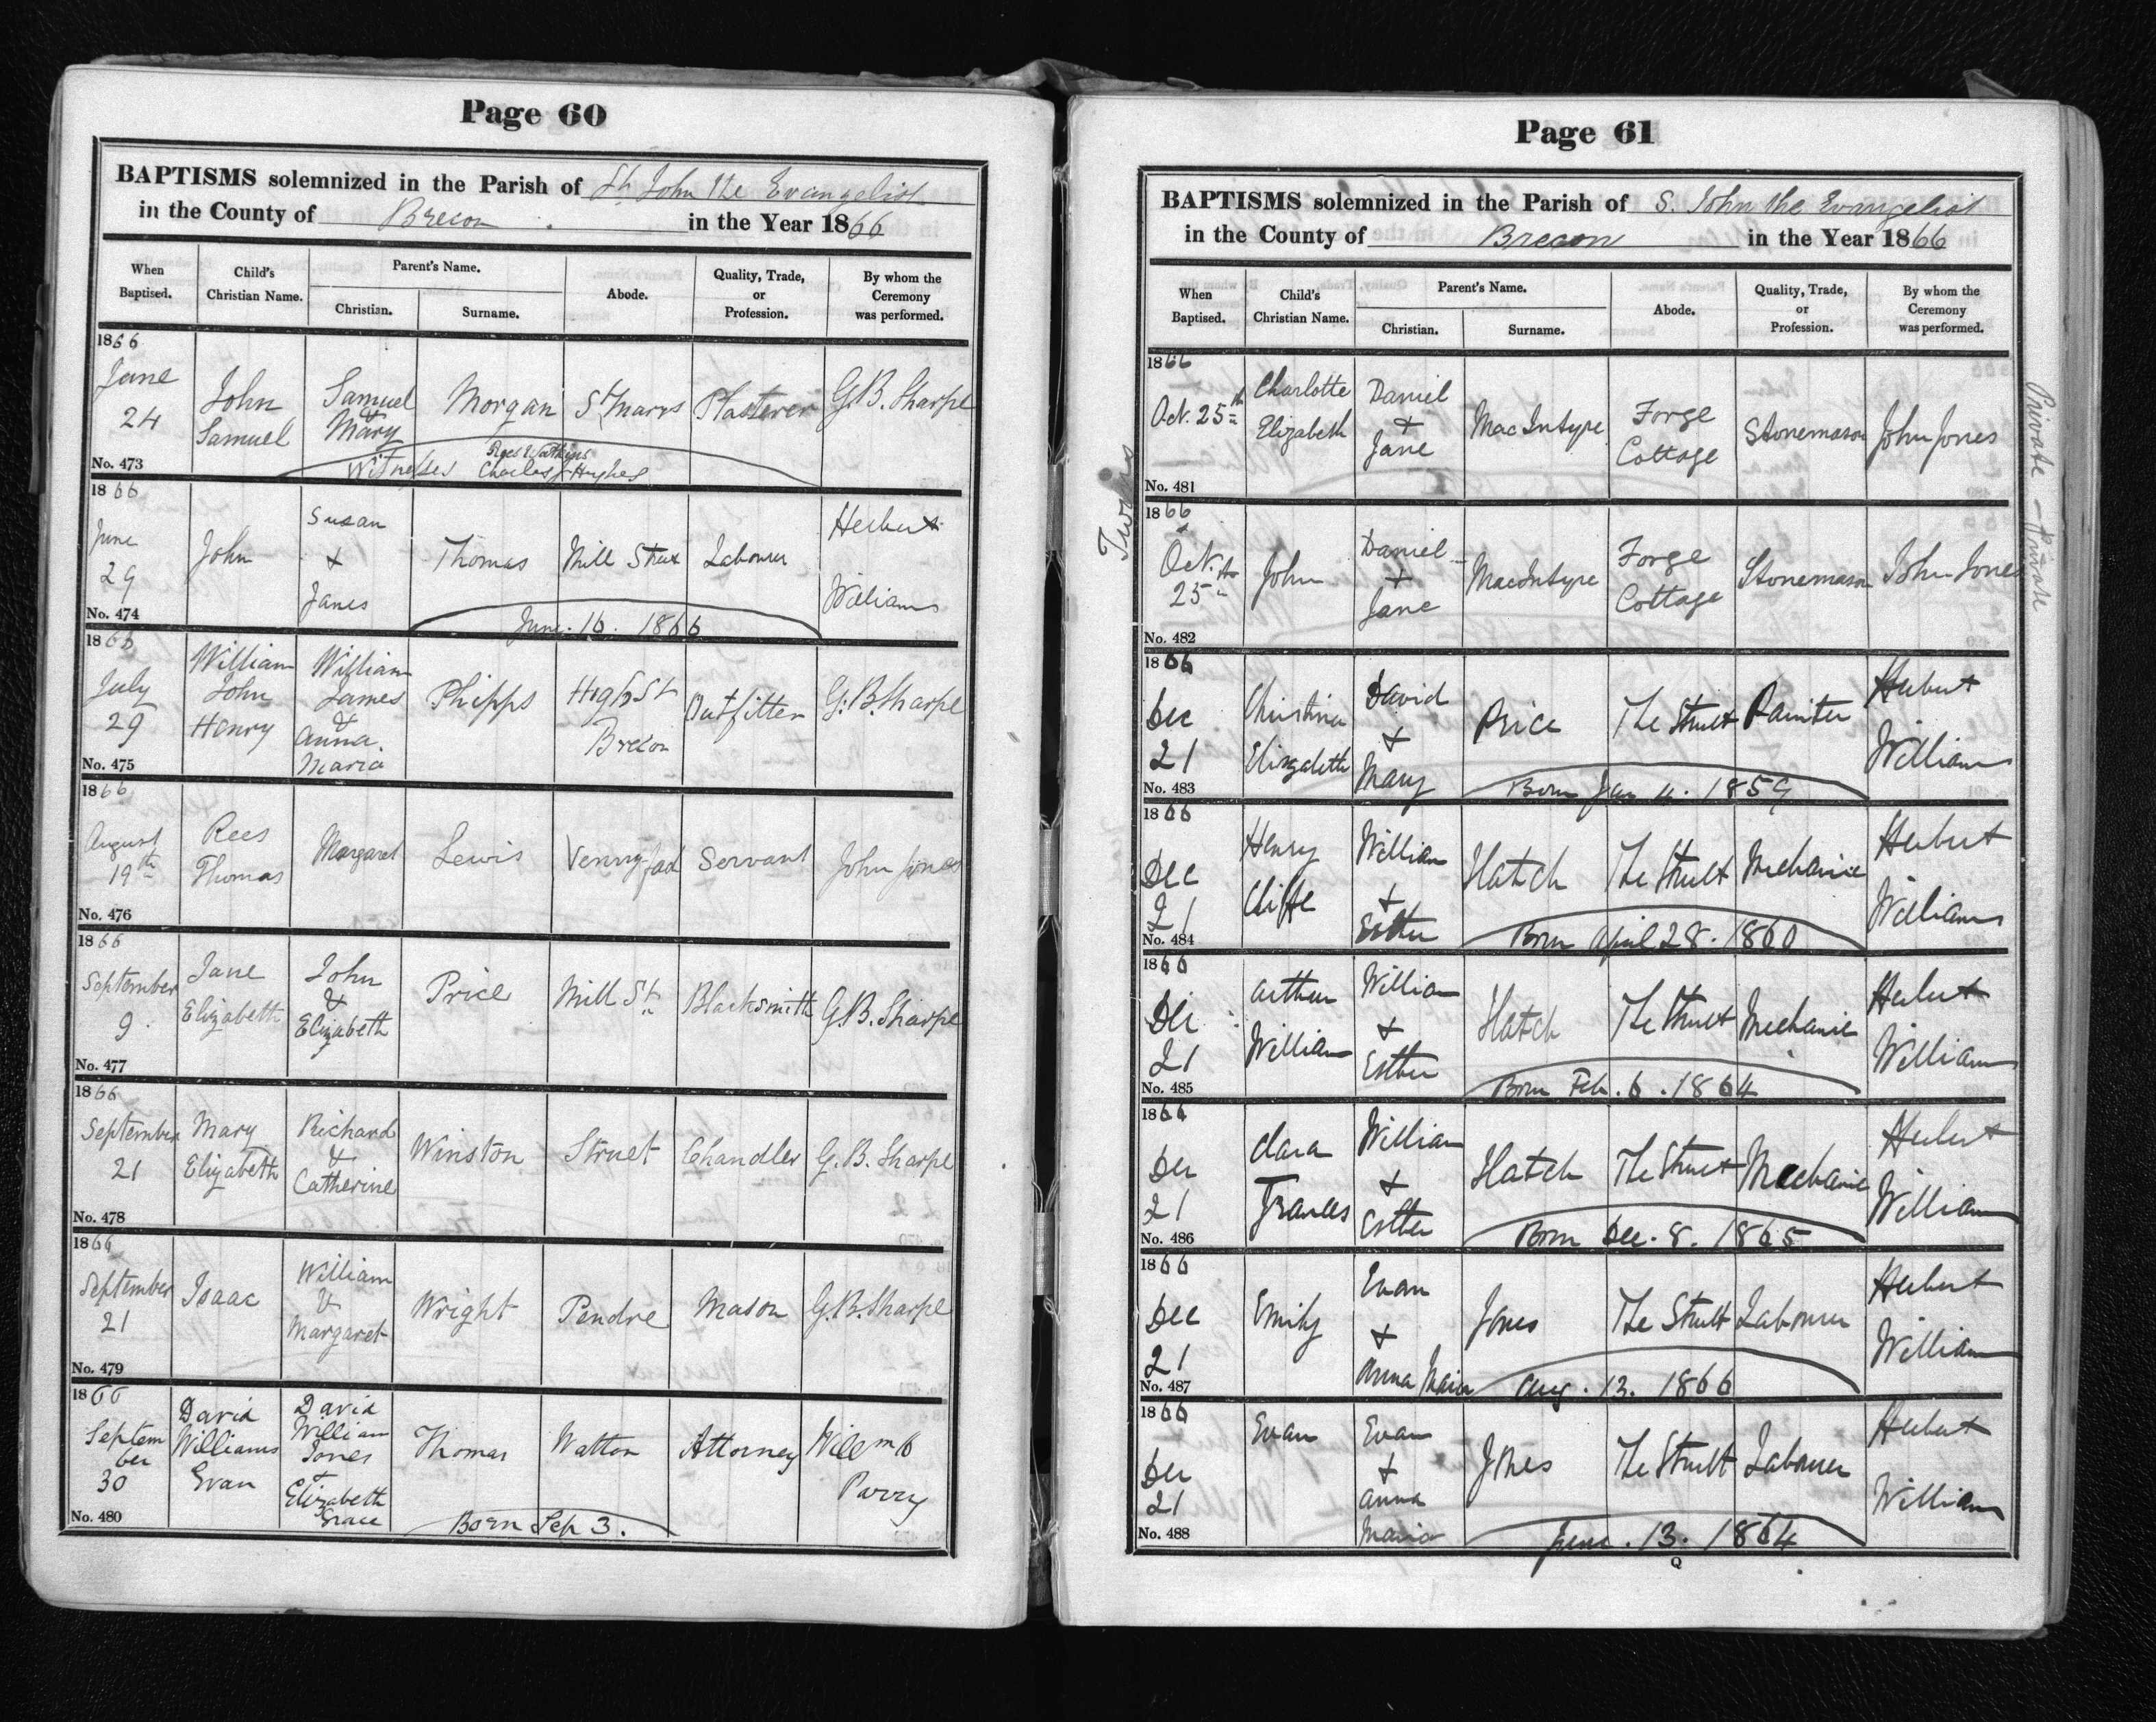 Page 60
BAPTISMS solemnized in the Parish of St John the Evangelist
in the County of Brecon in the Year 1866
When Baptised. Child's Christian Name. Parent's Name. Christian. Surname. Abode. Quality, Trade, or Profession. By whom the Ceremony was performed.
1866
June 24 John Samuel Samuel & Mary Morgan St Marys Plasterer G.B. Sharpe
Witnesses Rees Watkins Charles Hughes
No. 473
1866
June 29 John Susan + Janes Thomas Mill Street Labourer Herbert Williams
June. 16. 1866
No. 474
1866
July 29 William John Henry William James & Anna Maria Phipps High St Brecon Outfitter G.B. Sharpe
No. 475
1866
August 19th Rees Thomas Margaret Lewis Venny-fad Servant John Jones
No. 476
1866
September 9 Jane Elizabeth John & Elizabeth Price Mill St Blacksmith G.B. Sharpe
No. 477
1866
September 21 Mary Elizabeth Richard & Catherine Winston Struet Chandler G.B. Sharpe
No. 478
1866
September 21 Isaac William & Margaret Wright Pendre Mason G.B. Sharpe
No. 479
1866
September 30 David Williams Evan David William Jones + Elizabeth Grace Thomas Watton Attorney Parry
Born Sep 3.
No. 480
Page 61
BAPTISMS solemnized in the Parish of S. John the Evangelist
in the County of Brecon in the Year 1866
When Baptised. Child's Christian Name. Parent's Name. Christian. Surname. Abode. Quality, Trade, or Profession. By whom the Ceremony was performed.
Twins
Private - Private
1866
Oct. 25th Charlotte Elizabeth Daniel + Jane MacIntyre Forge Cottage Stonemason John Jones
No. 481
1866
Oct. 25th John Daniel + Jane MacIntyre Forge Cottage Stonemason John Jones
No. 482
1866
Dec 21 Christina Elizabeth David + Mary Price The Struet Painter Herbert Williams
Born Jan 4. 1859
No. 483
1866
Dec 21 Henry Cliffe William + Esther Hatch The Struet Mechanic Herbert Williams
Born April 28. 1860
No. 484
1866
Dec 21 Arthur William William + Esther Hatch The Struet Mechanic Herbert Williams
Born Feb. 6. 1864
No. 485
1866
Dec 21 Clara Frances William + Esther Hatch The Struet Mechanic Herbert Williams
Born Dec. 8. 1865
No. 486
1866
Dec 21 Emily Evan + Anna Maria Jones The Struet Labourer Herbert Williams
Aug. 13. 1866
No. 487
1866
Dec 21 Evan Evan + Anna Maria Jones The Struet Labourer Herbert Williams
June. 13. 1864
No. 488
Q